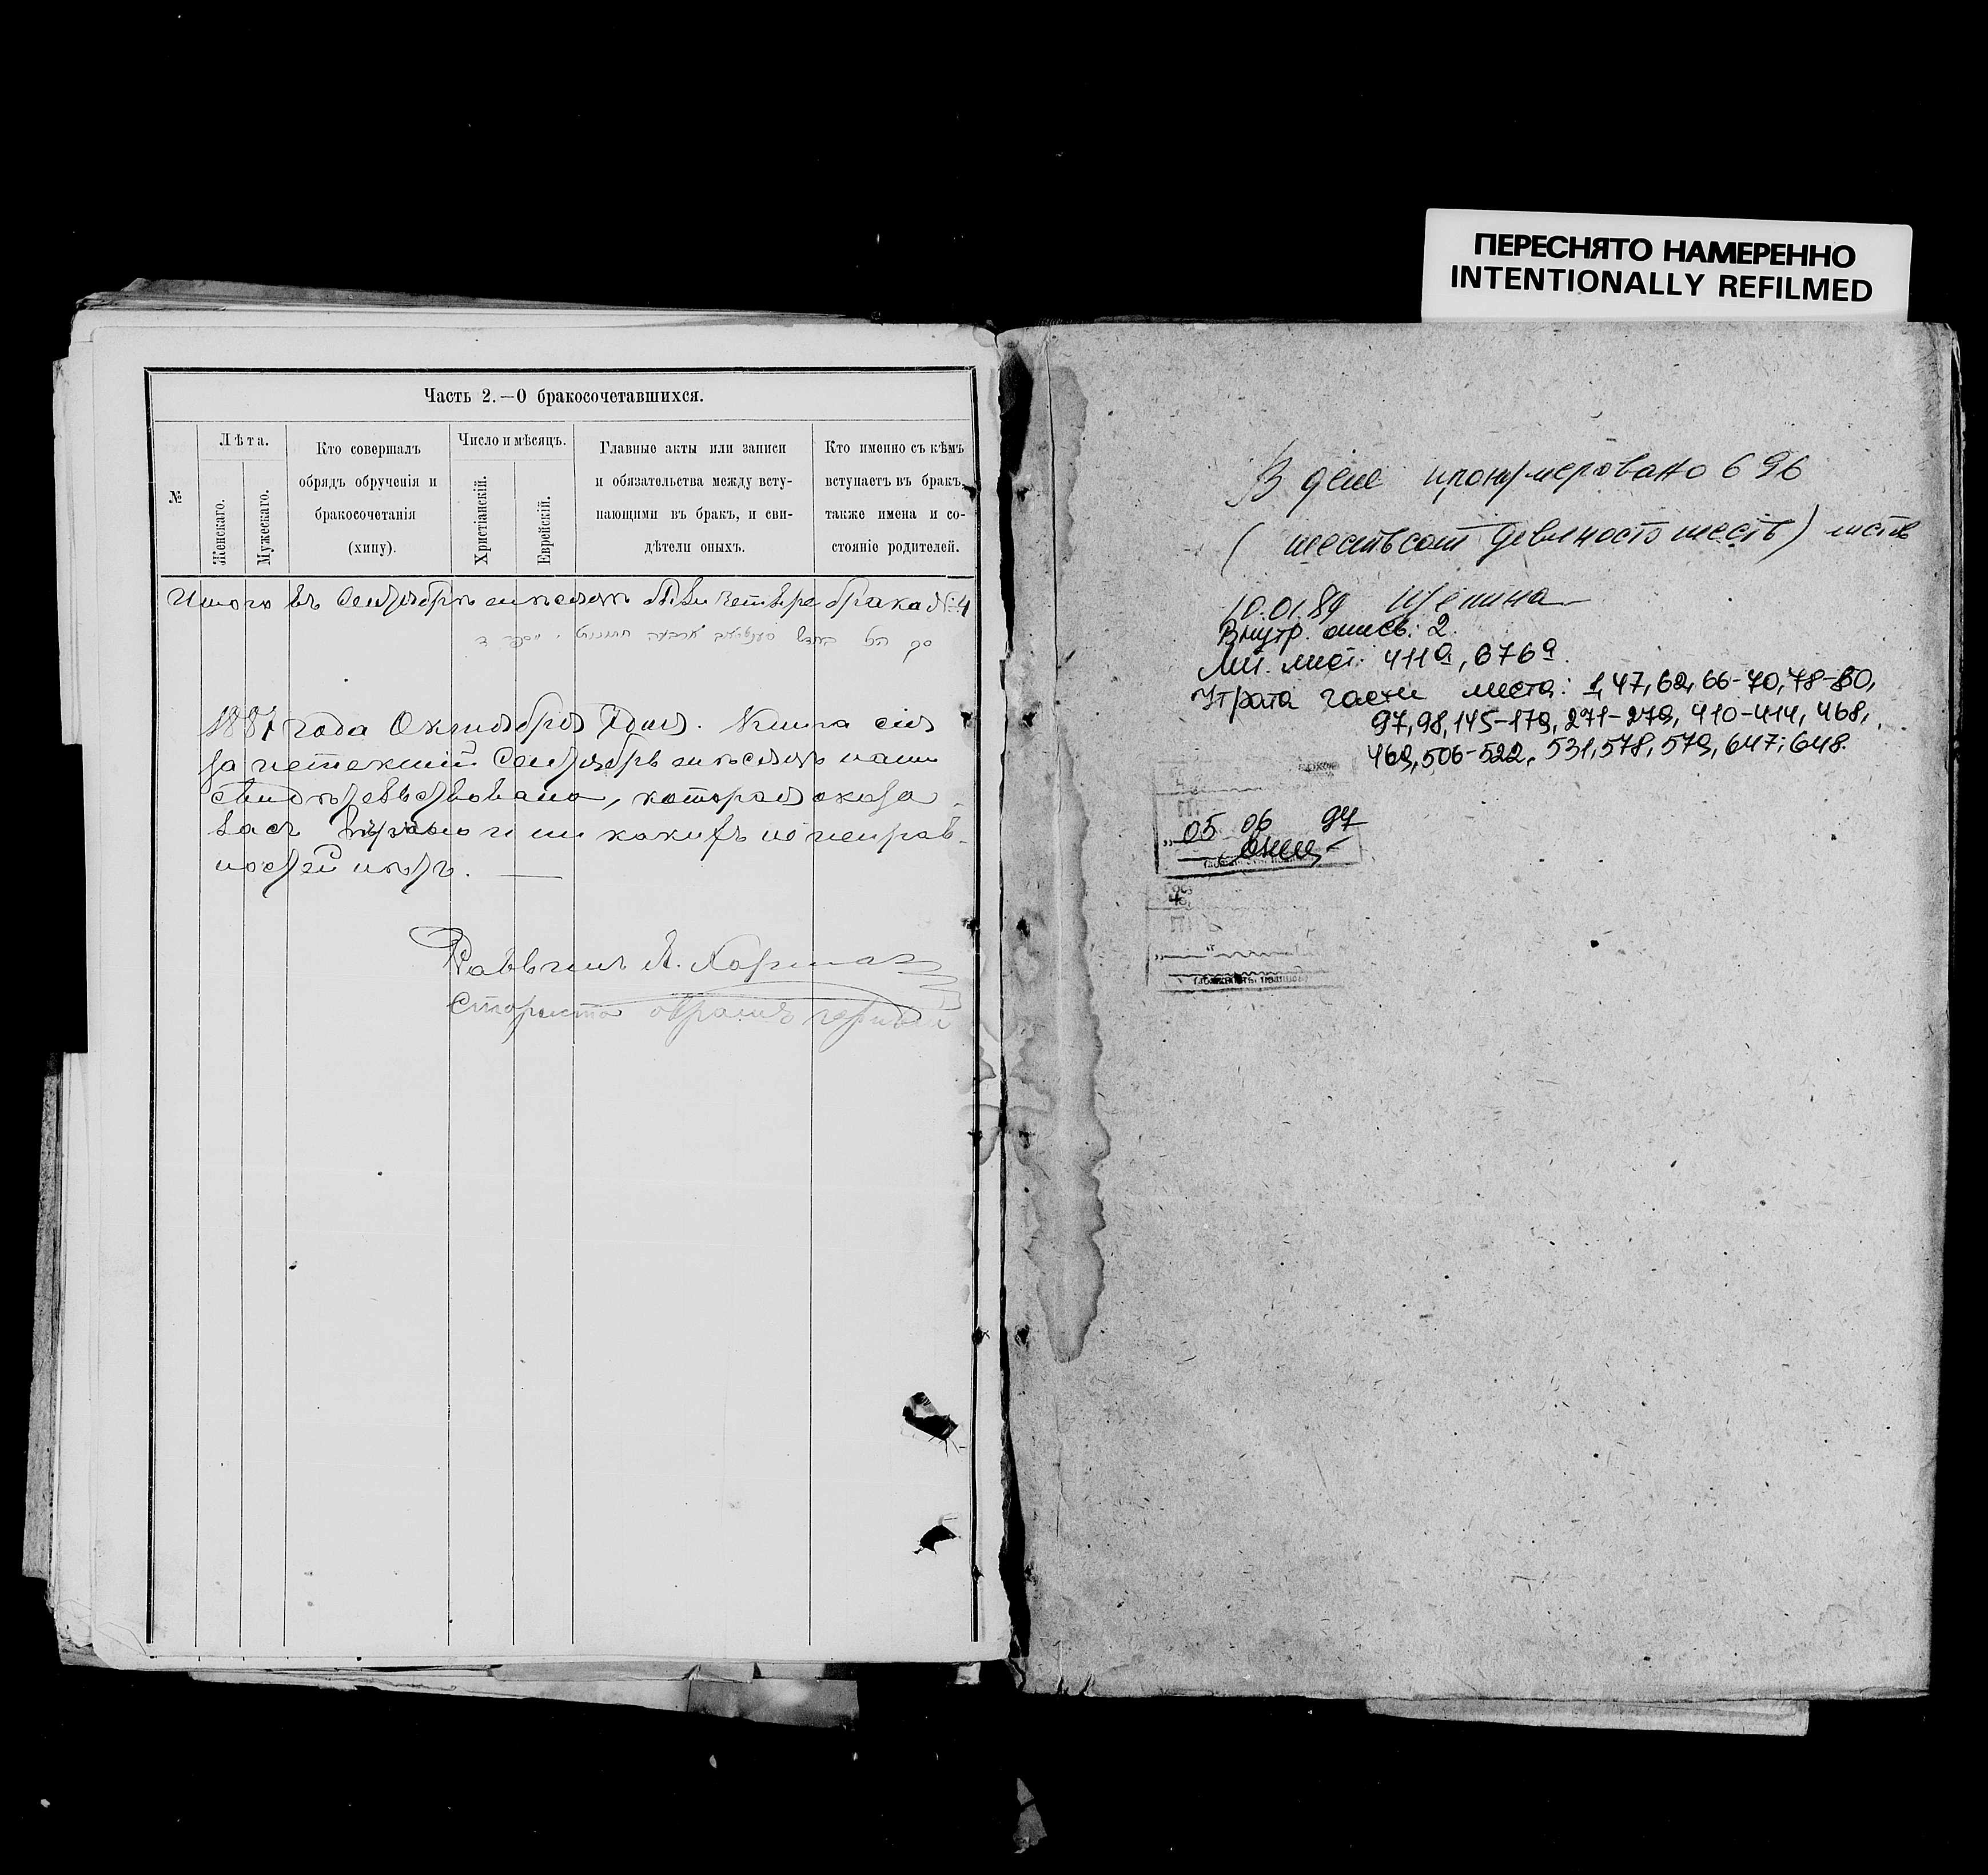 ПЕРЕСНЯТО НАМЕРЕННО
INTENTIONALLY REFILMED
Часть 2.—О бракосочетавшихся.
№
Лѣта.
Женскаго.
Мужескаго.
Кто совершалъ
обрядъ обрученія и
бракосочетанія
(хипу).
Число и мѣсяцъ.
Христіанскій.
Еврейскій.
Главные акты или записи
и обязательства между всту-
пающими въ бракъ, и сви-
дѣтели оныхъ.
Кто именно съ кѣмъ
вступаетъ въ бракъ,
также имена и со-
стояніе родителей.
Итого въ Сентябрѣ мѣсяцѣ четыре брака №4
1887 года Октября дня. Книга сія
за истекшій Сентябрь мѣсяцъ нами
свидѣтельствована, которая оказа
лась и ни какихъ неправ-
ностей нѣтъ.
Раввинъ
Староста
В деле пронумеровано 696
(шестьсот девяносто шесть) листов
10.01.89
Внутр. опись: 2.
Лит. лист: 411а, 676а.
Утрата части листа: 1, 47, 62, 66-70, 78-80,
97, 98, 145-179, 271-279, 410-414, 468,
469, 506-522, 531, 578, 579, 647; 648.
05 06 97